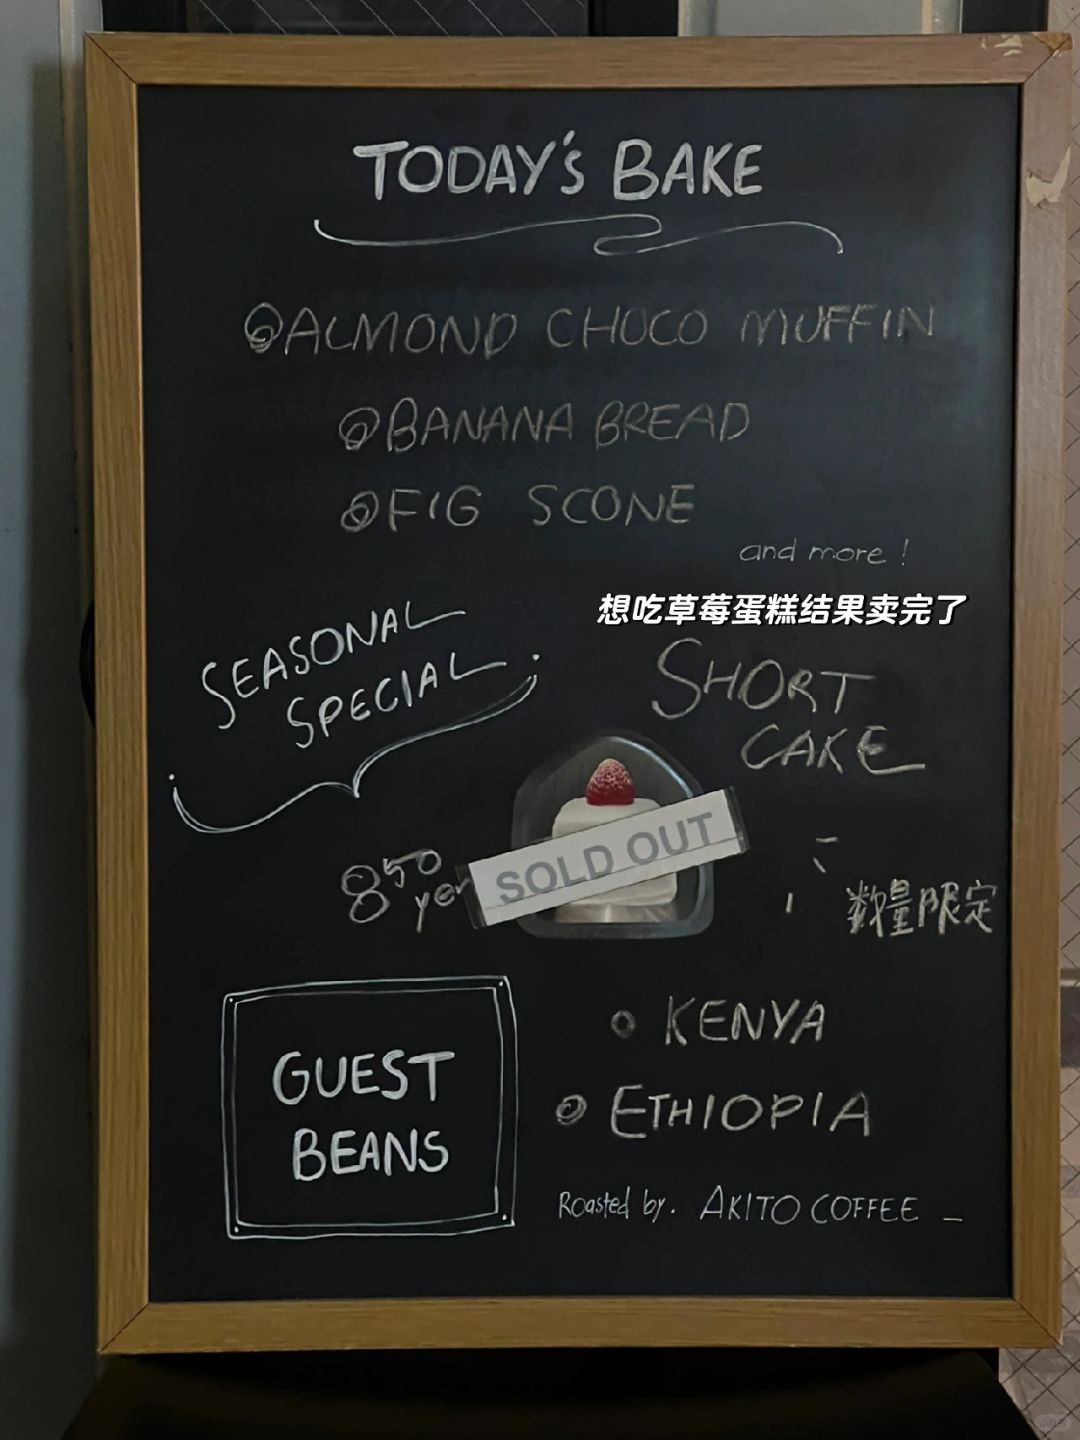 TODAY'S BAKE
ALMOND CHOCO MUFFIN
BANANA BREAD
FIG SCONE
and more!
想吃草莓蛋糕结果卖完了
SEASONAL
SPECIAL
SHORT
CAKE
SOLD OUT
850
yen
数量限定
GUEST
BEANS
KENYA
ETHIOPIA
Roasted by. AKITO COFFEE